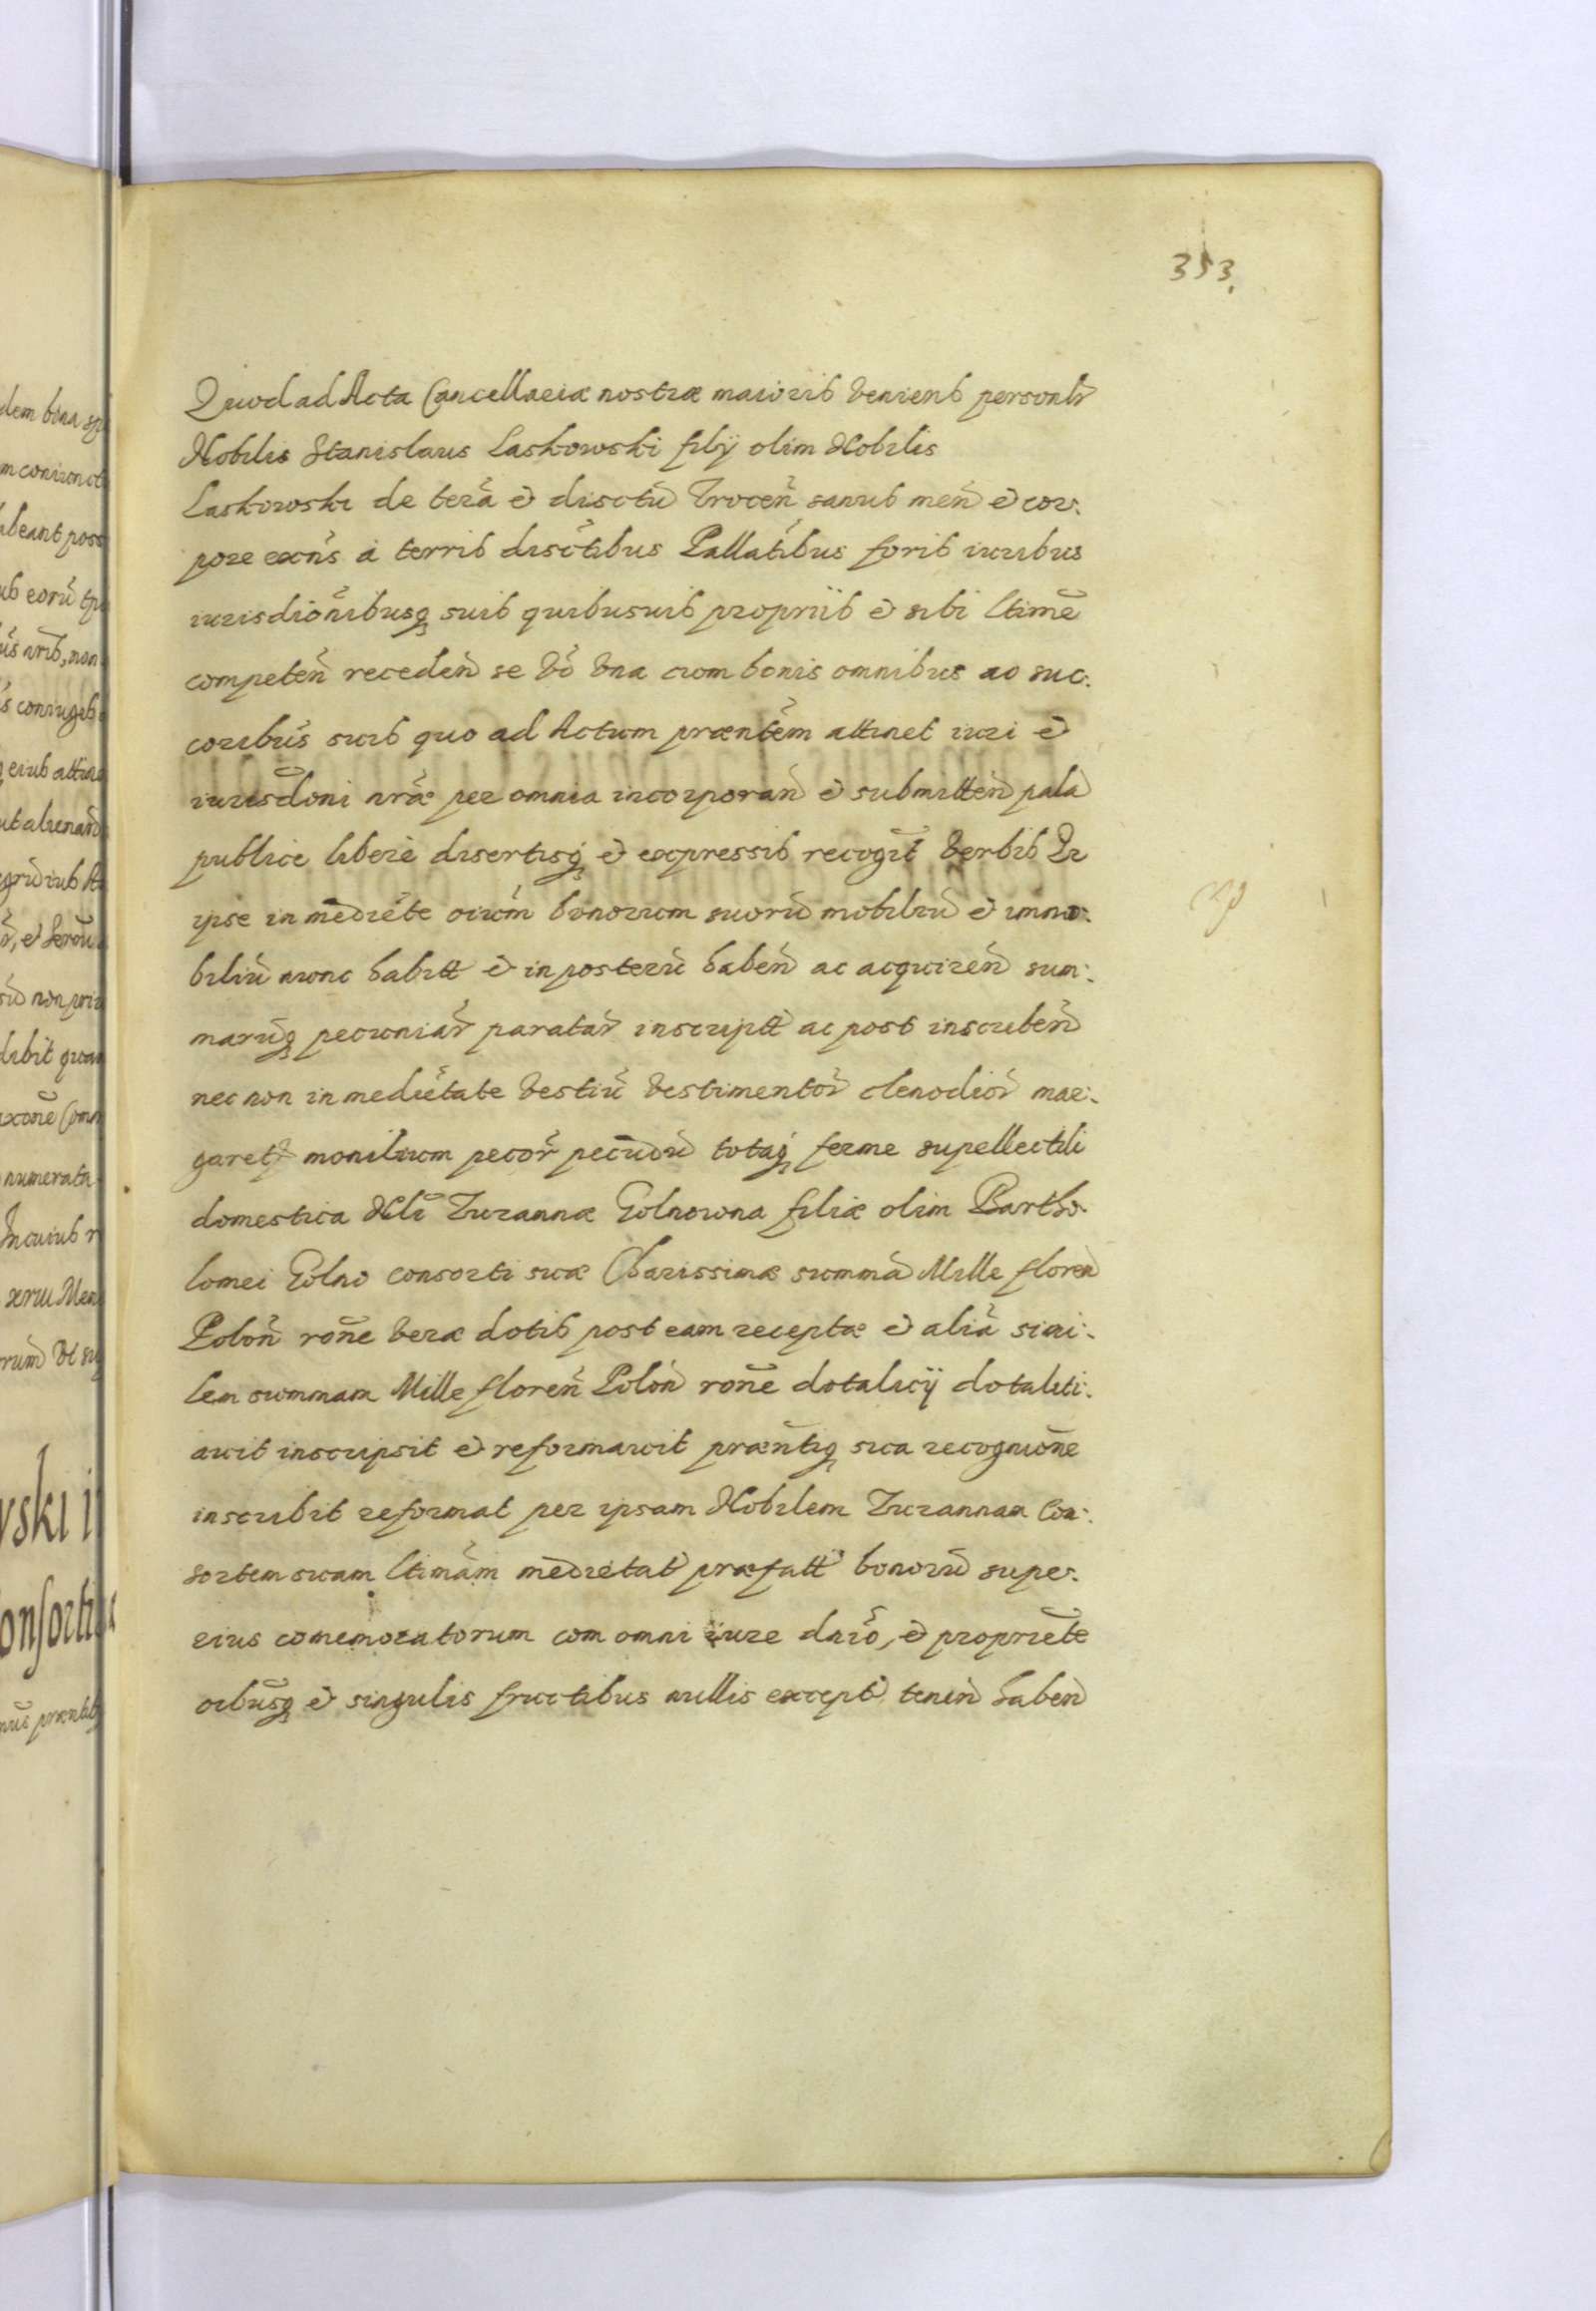 353.
Quod ad Acta Cancellariæ nostræ maioris veniens personlr
Nobilis Stanislaus Laskowski filÿ olim Nobilis
Laskowski de terã et disctũ Trocen̄ sanus men̄ et cor:
pore exn̄s a terris disc̄tibus Pallat̄ibus foris iuribus
iurisdiõnibusq suis quibusuis proprijs et sibi ltime
competen̄ receden̄ se vo vna cum bonis omnibus ac suc:
coribūs suis quo ad Actum præntem attinet iuri et
iurisdoni nræ per omnia incorporan̄ et submitten̄ palã
publice libere disertisq et expressis recogũt verbis Qr
ipse in mediete oium bonorum suorũ mobiliũ et immo:
biliũ nunc habitt et in posterũ haben̄ ac acquiren̄ sum:
marũq pecuniar̃ paratar̃ inscriptt ac post inscriben̄
nec non in medietate vestiũ vestimentor̃ clenodior̃ mar:
garet monilium pecor̃ pecudũ totaq ferme supellectili
domestica Nli Zuzannæ Golnowna filiæ olim Bartho:
lomei Golno consorti suæ Charissimæ summã Mille floren̄
Polon̄ rone veræ dotis post eam receptæ et aliã simi:
lem summam Mille floren̄ Polon̄ rone dotalicÿ dotaliti:
auit inscripsit et reformauit præntiq sua recognicone
inscribit reformat per ipsam Nobilem Zuzannam Con:
sortem suam ltimam medietat præfatt bonorũ supe:
rius comemoratorum cum omni iure dnio, et propriete
oibusq et singulis fructibus nullis except tenen̄ haben̄